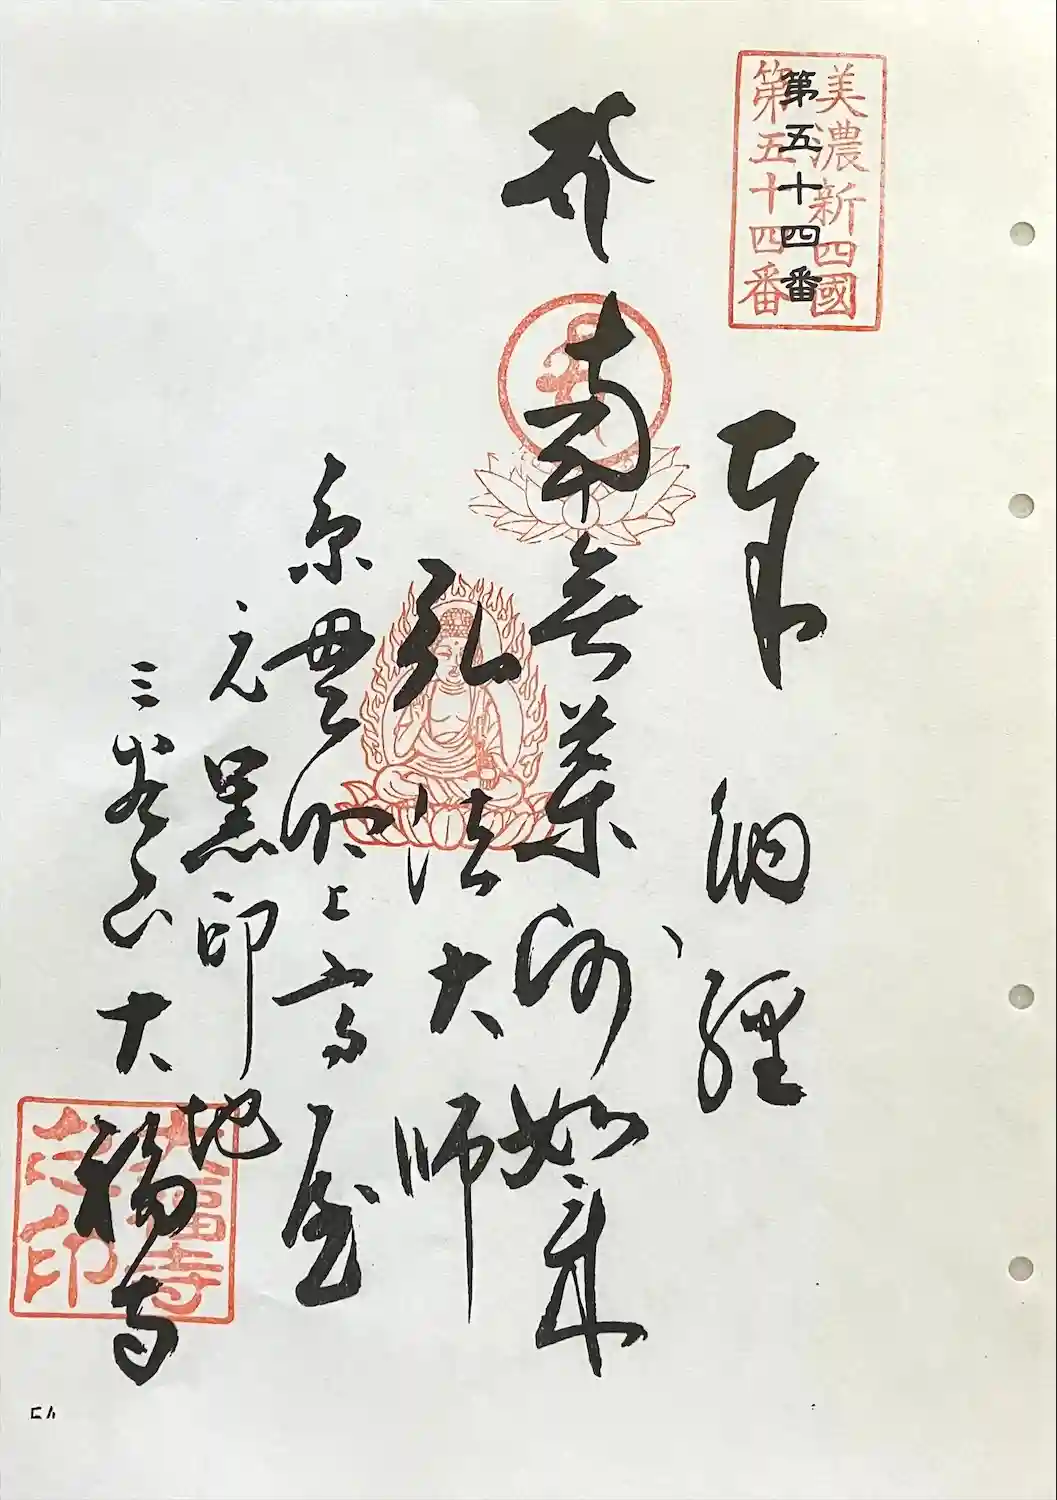 美濃新四國
第五十四番
第五十四番
奉納經
南無薬師如来
弘法大師
上高屋
元黒印地
大福寺
大福寺
之印